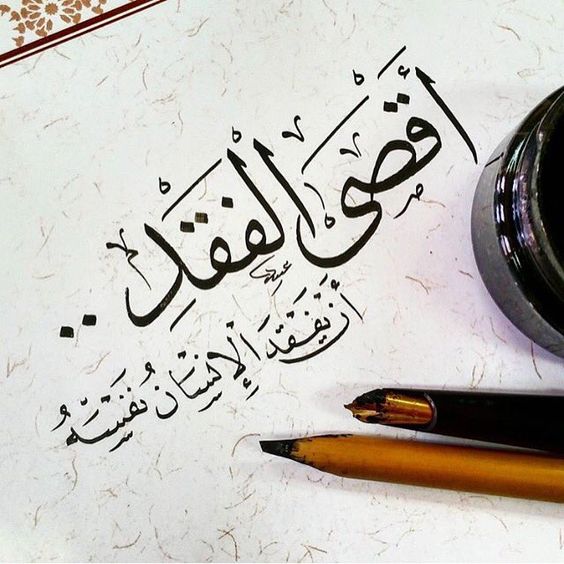 أَقْصَى الْفَقْدِ ..
أَنْ يَفْقِدَ الْإِنْسَانُ نَفْسَهُ